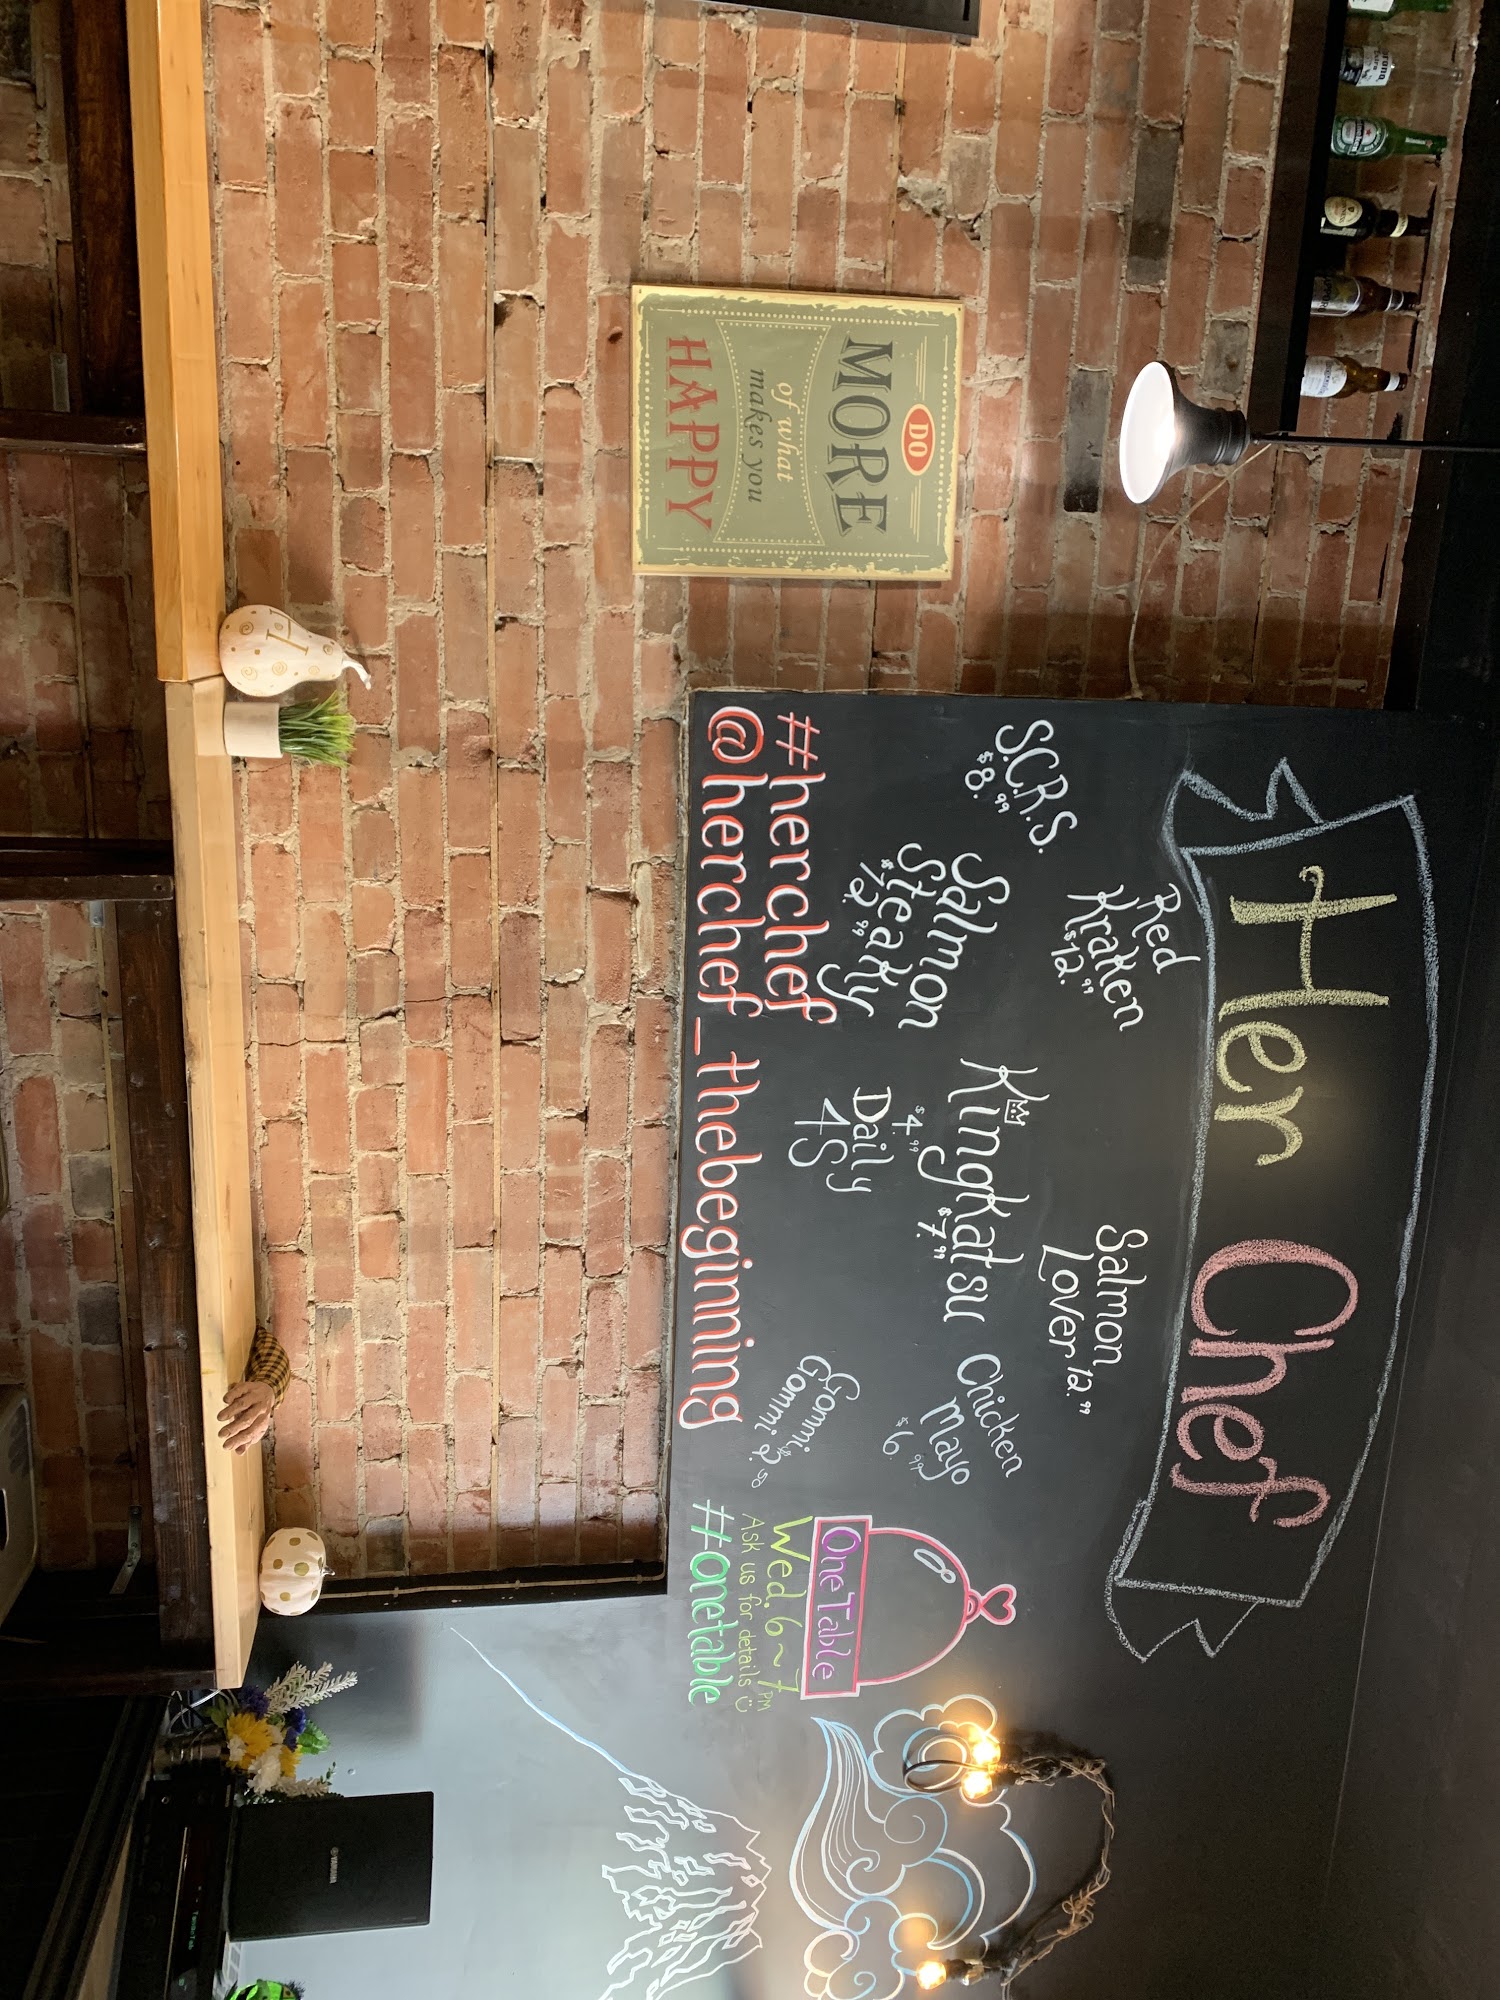 DO
MORE
of what
makes you
HAPPY
Her Chef
Red
Kraken
$12.99
S.C.R.S.
$8.99
Salmon
Lover 12.99
Salmon
Steaky
$12.99
Kingkatsu
$4.99
$7.99
Chicken
Mayo
$6.99
Daily
4S
Gommi
Gommi $2.50
#herchef
@herchef_thebeginning
One Table
Wed. 6~7 PM
Ask us for details
#onetable
H
YAMAHA
Heineken